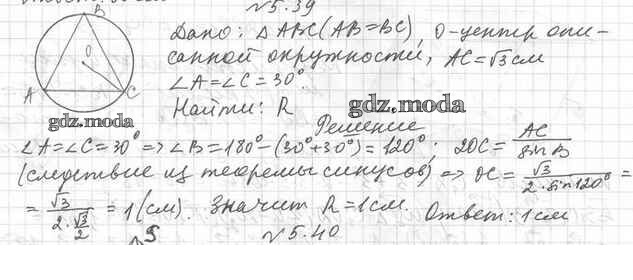 №5.39
B
O
A
C
Дано: △ABC (AB=BC), O-центр опи-
санной окружности, AC=√3см
∠A=∠C=30°.
Найти: R
gdz.moda
gdz.moda
Решение
∠A=∠C=30° => ∠B=180°-(30°+30°)=120°; 2OC = AC/sin B
(следствие из теоремы синусов) => OC = √3/(2·sin120°) =
= √3/(2·√3/2) = 1(см). Значит R=1см. Ответ: 1см
№5.40